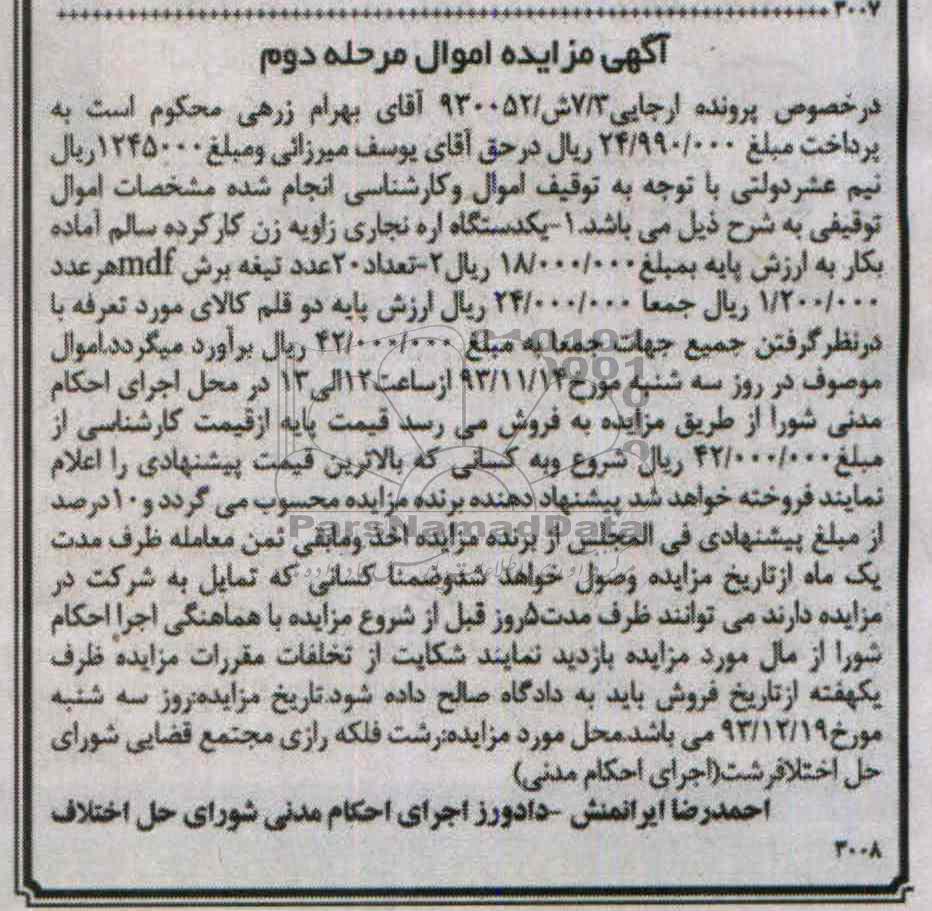 ۳۰۰۷
آگهی مزایده اموال مرحله دوم
درخصوص پرونده ارجایی۷/۳ش/۹۳۰۰۵۲ آقای بهرام زرهی محکوم است به
پرداخت مبلغ ۲۴/۹۹۰/۰۰۰ ریال درحق آقای یوسف میرزائی ومبلغ۱۲۴۵۰۰۰ریال
نیم عشردولتی با توجه به توقیف اموال وکارشناسی انجام شده مشخصات اموال
توقیفی به شرح ذیل می باشد.۱-یکدستگاه اره نجاری زاویه زن کارکرده سالم آماده
بکار به ارزش پایه بمبلغ۱۸/۰۰۰/۰۰۰ ریال۲-تعداد۲۰عدد تیغه برش mdfهرعدد
۱/۲۰۰/۰۰۰ ریال جمعا ۲۴/۰۰۰/۰۰۰ ریال ارزش پایه دو قلم کالای مورد تعرفه با
درنظرگرفتن جمیع جهات جمعا به مبلغ ۴۲/۰۰۰/۰۰۰ ریال برآورد میگردد.اموال
موصوف در روز سه شنبه مورخ۹۳/۱۱/۱۴ ازساعت۱۲الی۱۳ در محل اجرای احکام
مدنی شورا از طریق مزایده به فروش می رسد قیمت پایه ازقیمت کارشناسی از
مبلغ۴۲/۰۰۰/۰۰۰ ریال شروع وبه کسانی که بالاترین قیمت پیشنهادی را اعلام
نمایند فروخته خواهد شد پیشنهاد دهنده برنده مزایده محسوب می گردد و۱۰درصد
از مبلغ پیشنهادی فی المجلس از برنده مزایده اخذ ومابقی ثمن معامله ظرف مدت
یک ماه ازتاریخ مزایده وصول خواهد شدوضمنا کسانی که تمایل به شرکت در
مزایده دارند می توانند ظرف مدت۵روز قبل از شروع مزایده با هماهنگی اجرا احکام
شورا از مال مورد مزایده بازدید نمایند شکایت از تخلفات مقررات مزایده ظرف
یکهفته ازتاریخ فروش باید به دادگاه صالح داده شود.تاریخ مزایده:روز سه شنبه
مورخ۹۳/۱۲/۱۹ می باشد.محل مورد مزایده:رشت فلکه رازی مجتمع قضایی شورای
حل اختلافرشت(اجرای احکام مدنی)
احمدرضا ایرانمنش -دادورز اجرای احکام مدنی شورای حل اختلاف
۳۰۰۸
ParsNamadData